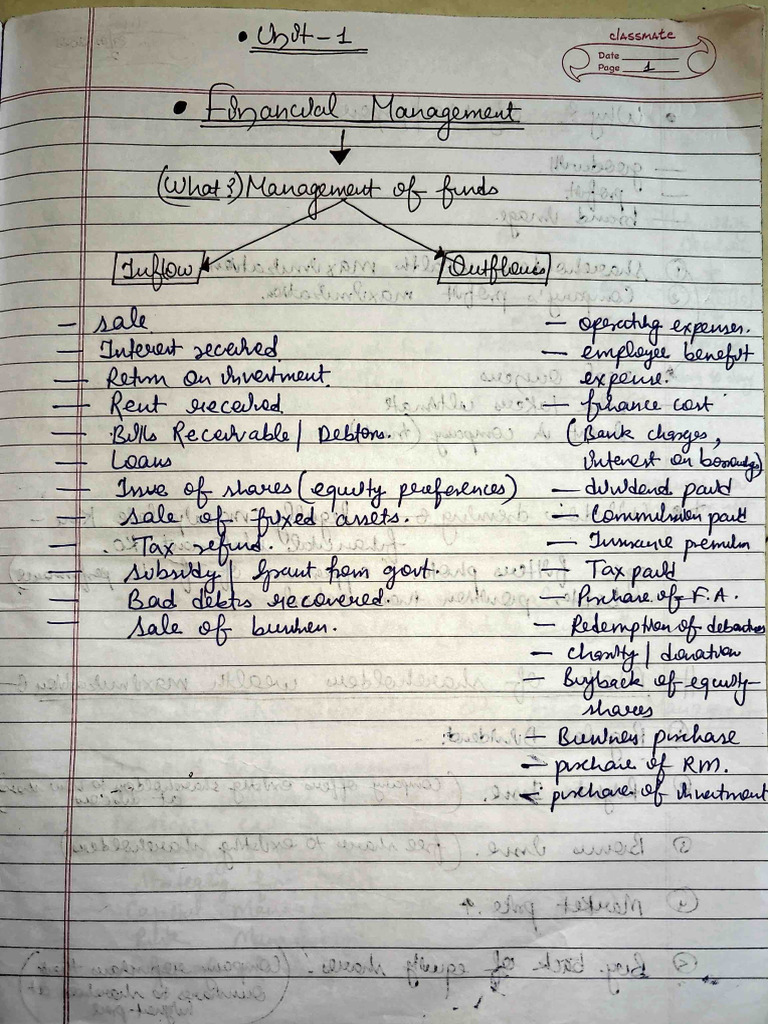 • Unit-1
classmate
Date
Page 1
• Financial Management
(What?) Management of funds
Inflow
Outflows
— sale
— Interest received
— Return on investment
— Rent received
— Bills Receivable / Debtors.
— Loans
— Issue of shares (equity preferences)
— sale of fixed assets.
— Tax refund.
— subsidy / Grant from govt
— Bad debts recovered.
— sale of business.
— operating expenses.
— employee benefit
expense.
— finance cost
(Bank charges,
interest on borrowings)
— dividend paid
— Commission paid
— Insurance premium
— Tax paid
— Purchase of F.A.
— Redemption of debentures
— charity / donation
— Buyback of equity
shares
— Business purchase
— purchase of RM.
— purchases of investment